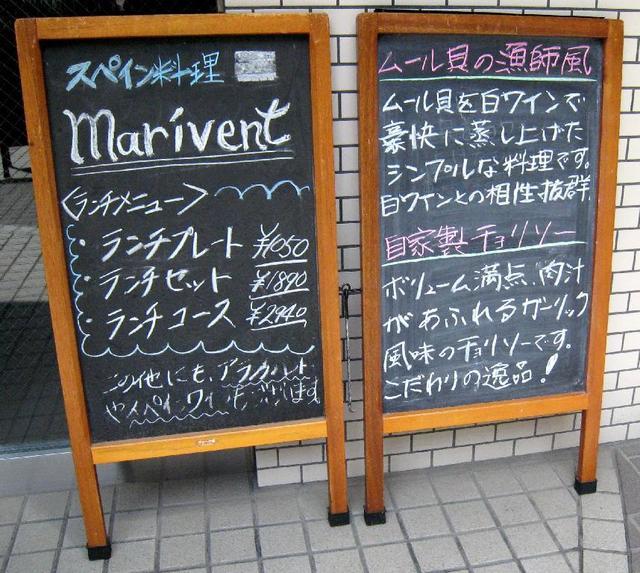 スペイン料理
Marivent
〈ランチメニュー〉
・ランチプレート ¥1050
・ランチセット ¥1890
・ランチコース ¥2940
この他にも、アラカルト
やスペインワインもございます
ムール貝の漁師風
ムール貝を白ワインで
豪快に蒸し上げた
シンプルな料理です。
白ワインとの相性抜群
自家製チョリソー
ボリューム満点、肉汁
があふれるガーリック
風味のチョリソーです。
こだわりの逸品!